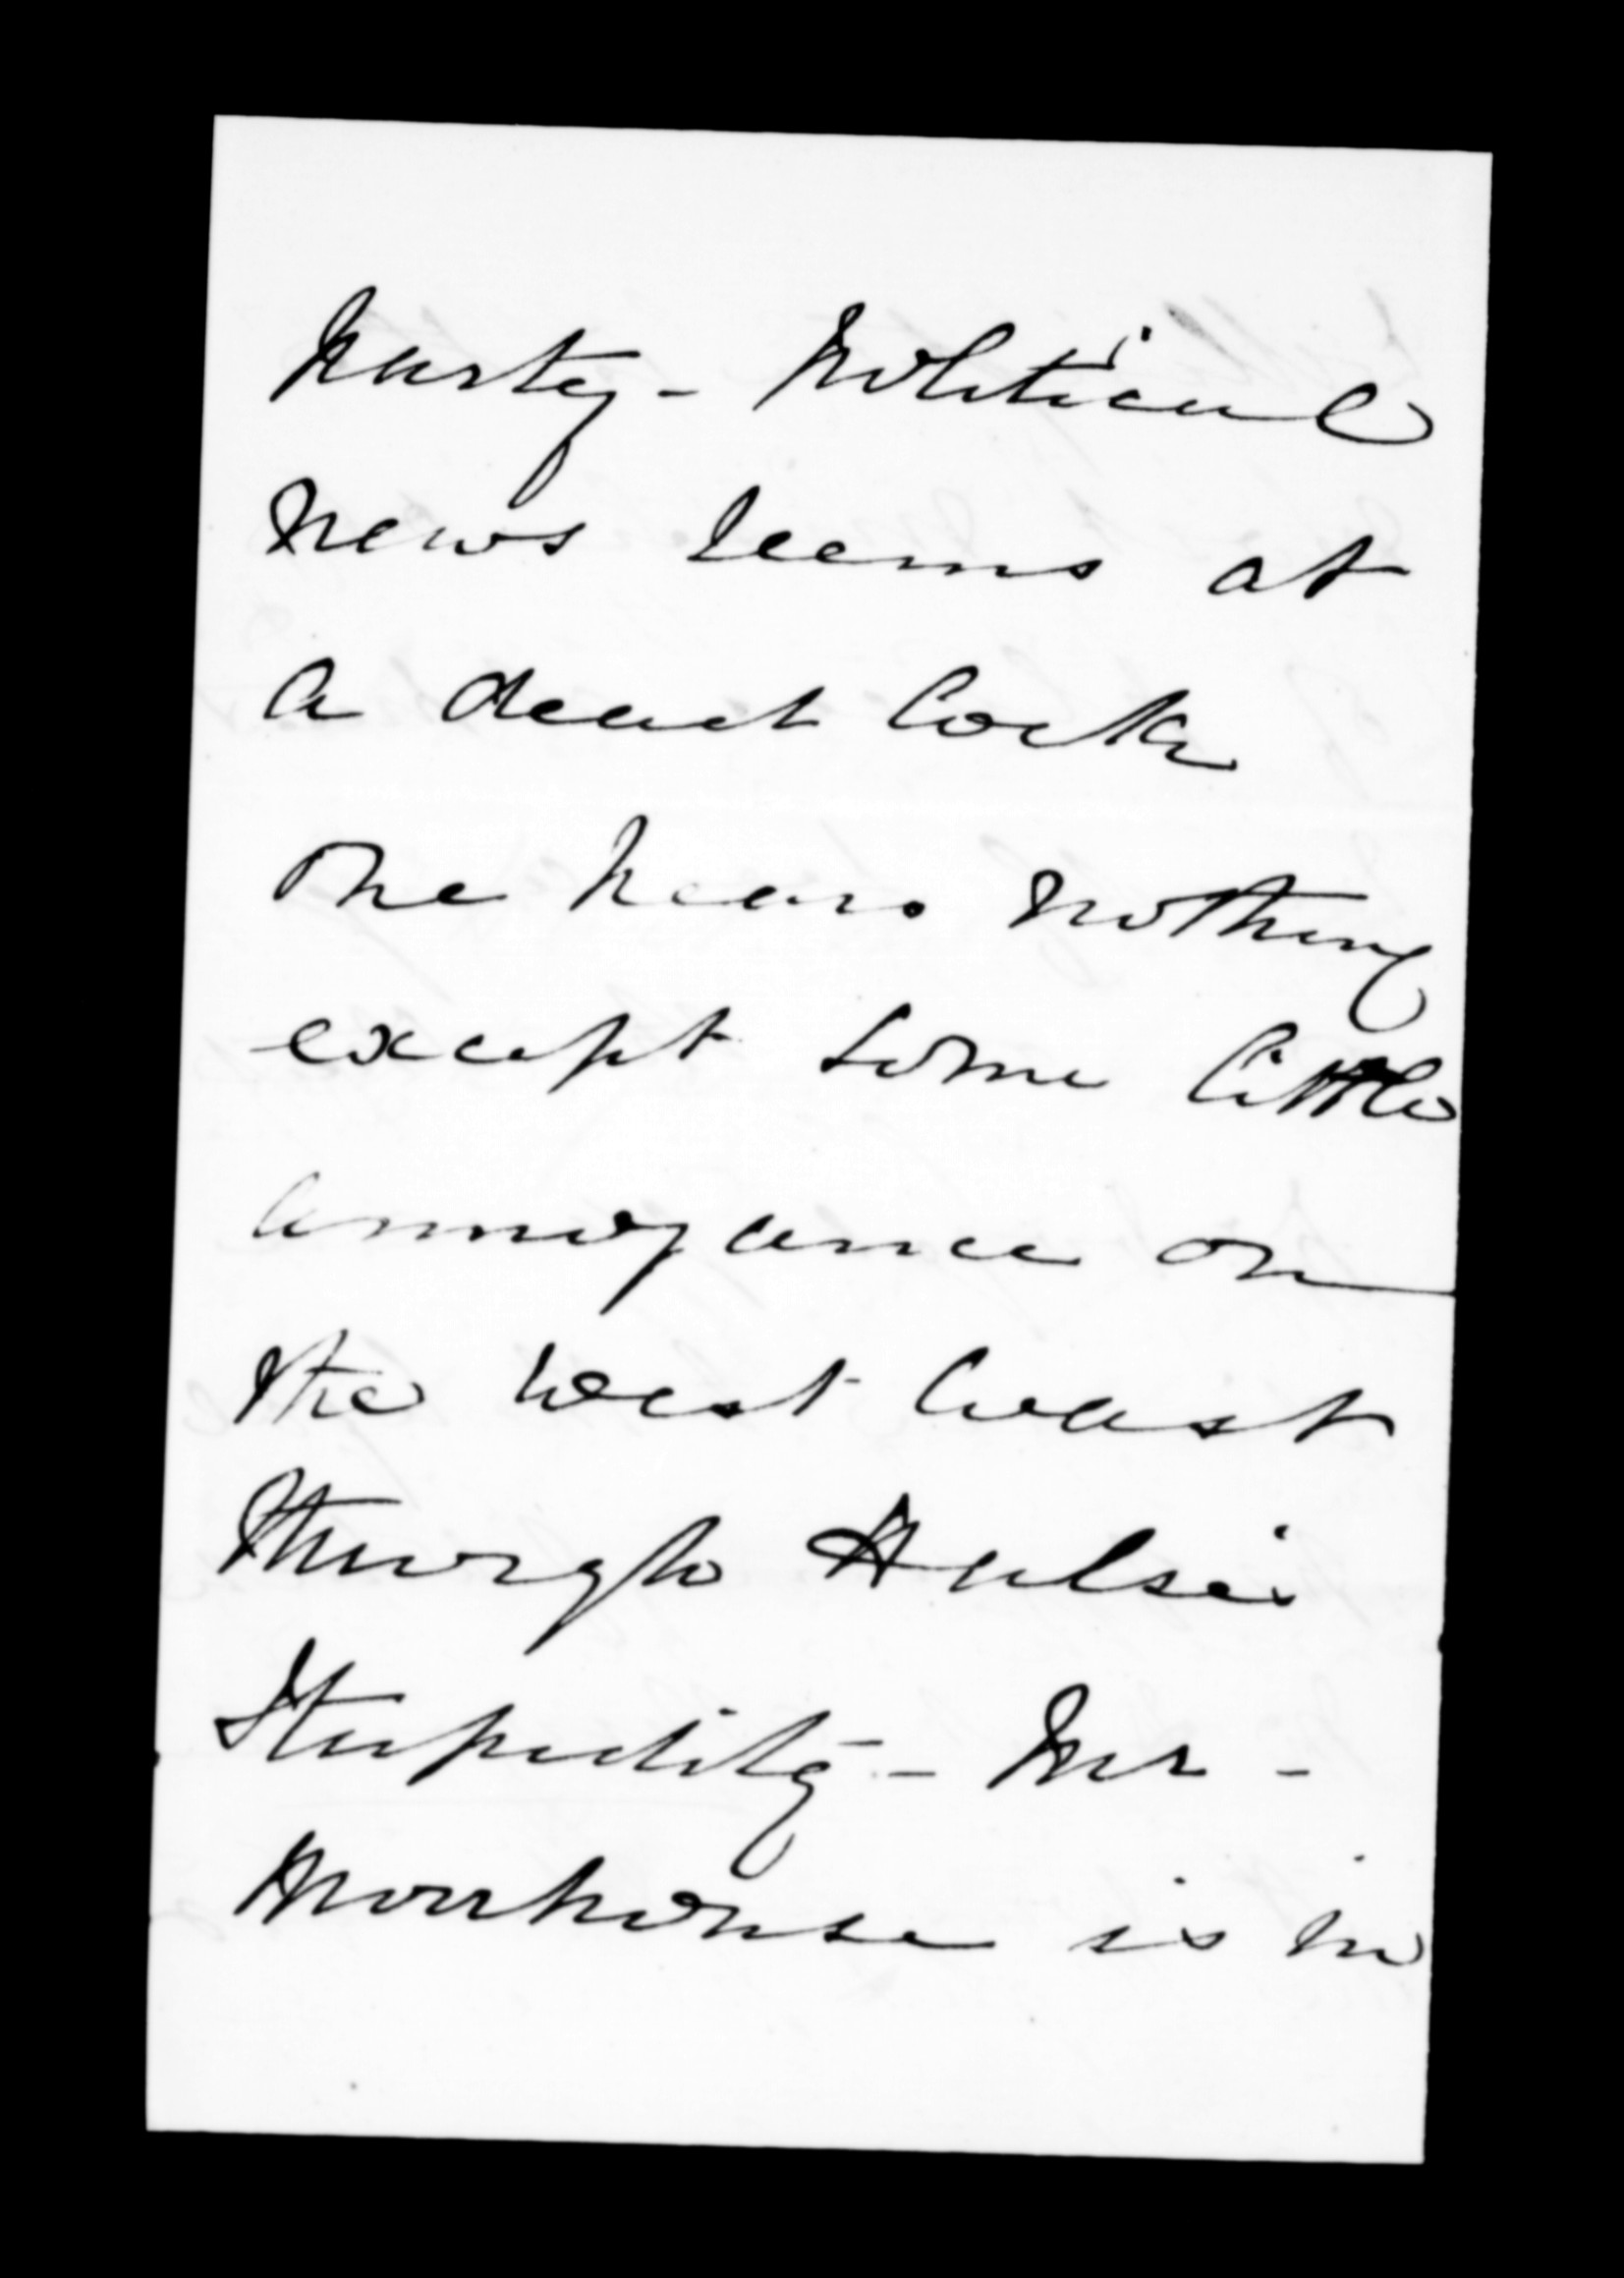 party - Political
news seems at
a dead lock
One hears nothing
except some little
annoyance on
the West Coast
through Hulse's
Stupidity - Mr -
Moorhouse is in